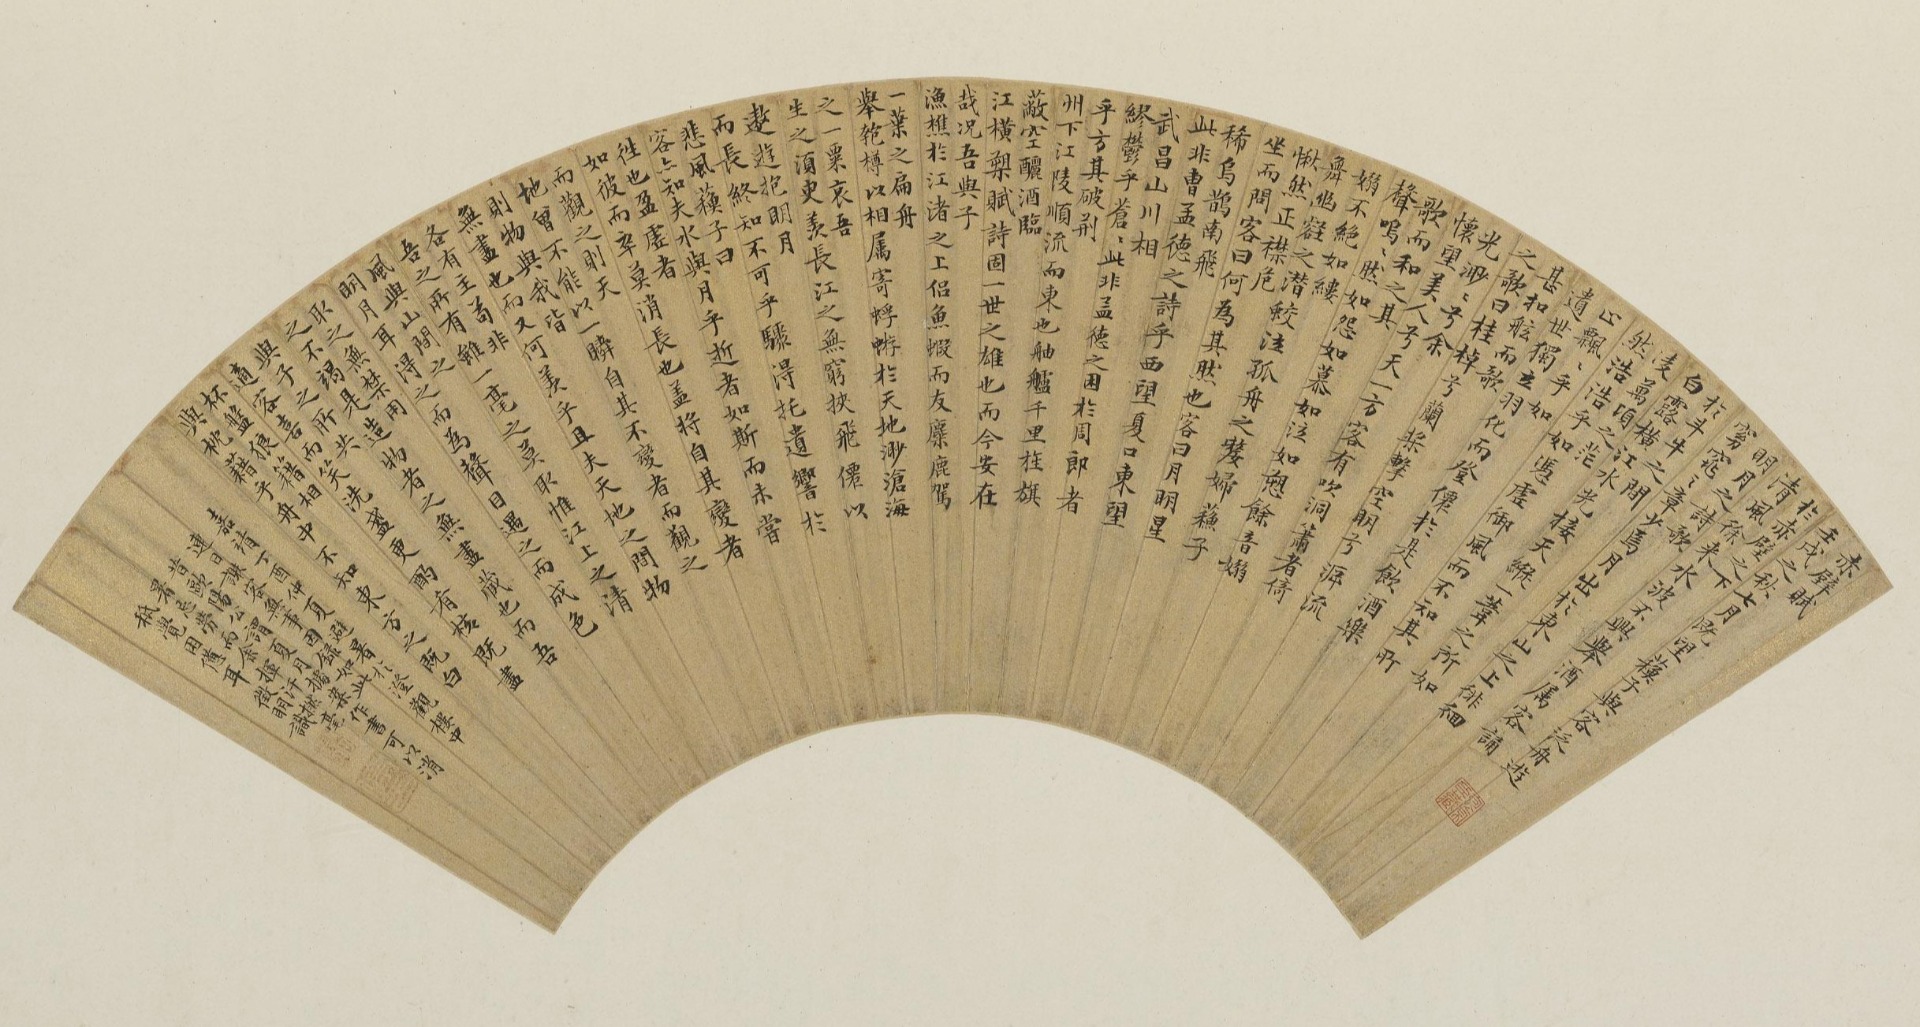 赤壁賦
壬戌之秋七月既望蘓子與客泛舟遊
於赤壁之下
清風徐來水波不興舉酒属客誦
明月之詩歌
窈窕之章少焉月出於東山之上徘徊
於斗牛之間
白露橫江水光接天縱一葦之所如
凌萬頃之茫
然浩浩乎如馮虛御風而不知其所
止飄〻乎如
遺世獨立羽化而登僊於是飲酒樂
甚扣舷而歌
之歌曰桂棹兮蘭槳擊空明兮泝流
光渺〻兮余
懷望美人兮天一方客有吹洞簫者倚
歌而和之其
聲嗚〻然如怨如慕如泣如愬餘音嫋
嫋不絕如縷
舞幽壑之潛蛟泣孤舟之嫠婦蘓子
愀然正襟危
坐而問客曰何為其然也客曰月明星
稀烏鵲南飛
此非曹孟德之詩乎西望夏口東望
武昌山川相
繆鬱乎蒼〻此非孟德之困於周郎者
乎方其破荊
州下江陵順流而東也舳艫千里旌旗
蔽空釃酒臨
江橫槊賦詩固一世之雄也而今安在
哉况吾與子
漁樵於江渚之上侣魚蝦而友麋鹿駕
一葉之扁舟
舉匏樽以相属寄蜉蝣於天地渺滄海
之一粟哀吾
生之須臾羨長江之無窮挾飛僊以
遨遊抱明月
而長終知不可乎驟得托遺響於
悲風蘓子曰
客亦知夫水與月乎逝者如斯而未嘗
往也盈虛者
如彼而卒莫消長也盖將自其變者
而觀之則天
地曾不能以一瞬自其不變者而觀之
則物與我皆
無盡也而又何羨乎且夫天地之間物
各有主苟非
吾之所有雖一毫之莫取惟江上之清
風與山間之
明月耳得之而為聲目遇之而成色
取之無禁用
之不竭是造物者之無盡藏也而吾
與子之所共
適客喜而笑洗盞更酌肴核既盡
杯盤狼籍相
與枕藉乎舟中不知東方之既白
嘉靖丁酉仲夏避暑於澄觀樓中
連日謝客無事因録如此
昔歐陽公謂夏月據案作書可以消
暑忘勞而余揮汗撚毫
秪覺困憊耳徵明識